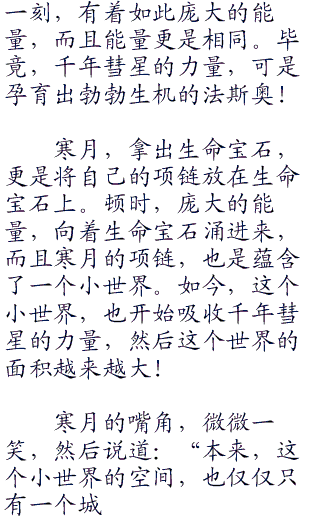 一刻，有着如此庞大的能
量，而且能量更是相同。毕
竟，千年彗星的力量，可是
孕育出勃勃生机的法斯奥！
寒月，拿出生命宝石，
更是将自己的项链放在生命
宝石上。顿时，庞大的能
量，向着生命宝石涌进来，
而且寒月的项链，也是蕴含
了一个小世界。如今，这个
小世界，也开始吸收千年彗
星的力量，然后这个世界的
面积越来越大！
寒月的嘴角，微微一
笑，然后说道：“本来，这
个小世界的空间，也仅仅只
有一个城